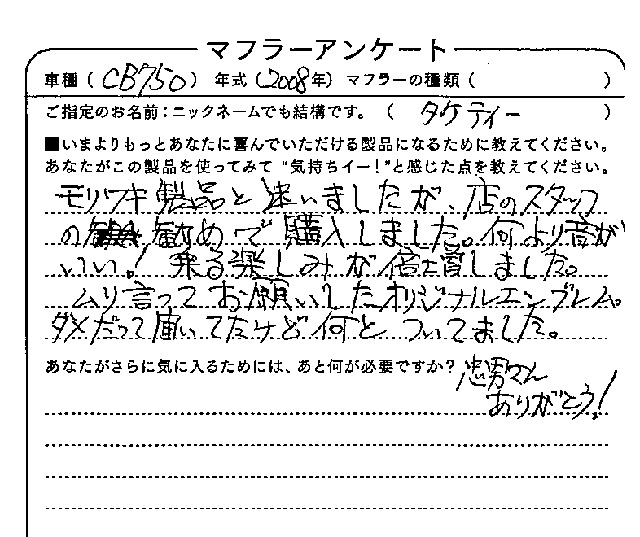 マフラーアンケート
車種（CB750）年式（2008年）マフラーの種類（　　　）
ご指定のお名前：ニックネームでも結構です。（タケティー）
■いまよりもっとあなたに喜んでいただける製品になるために教えてください。
あなたがこの製品を使ってみて“気持ちイー！”と感じた点を教えてください。
モリワキ製品と迷いましたが、店のスタッフ
の勧めで購入しました。何より音が
いい！乗る楽しみが倍増しました。
ムリ言ってお願いしたオリジナルエンブレム。
ダメだって届いてたけど何とついてました。
あなたがさらに気に入るためには、あと何が必要ですか？
忠男さん
ありがとう！